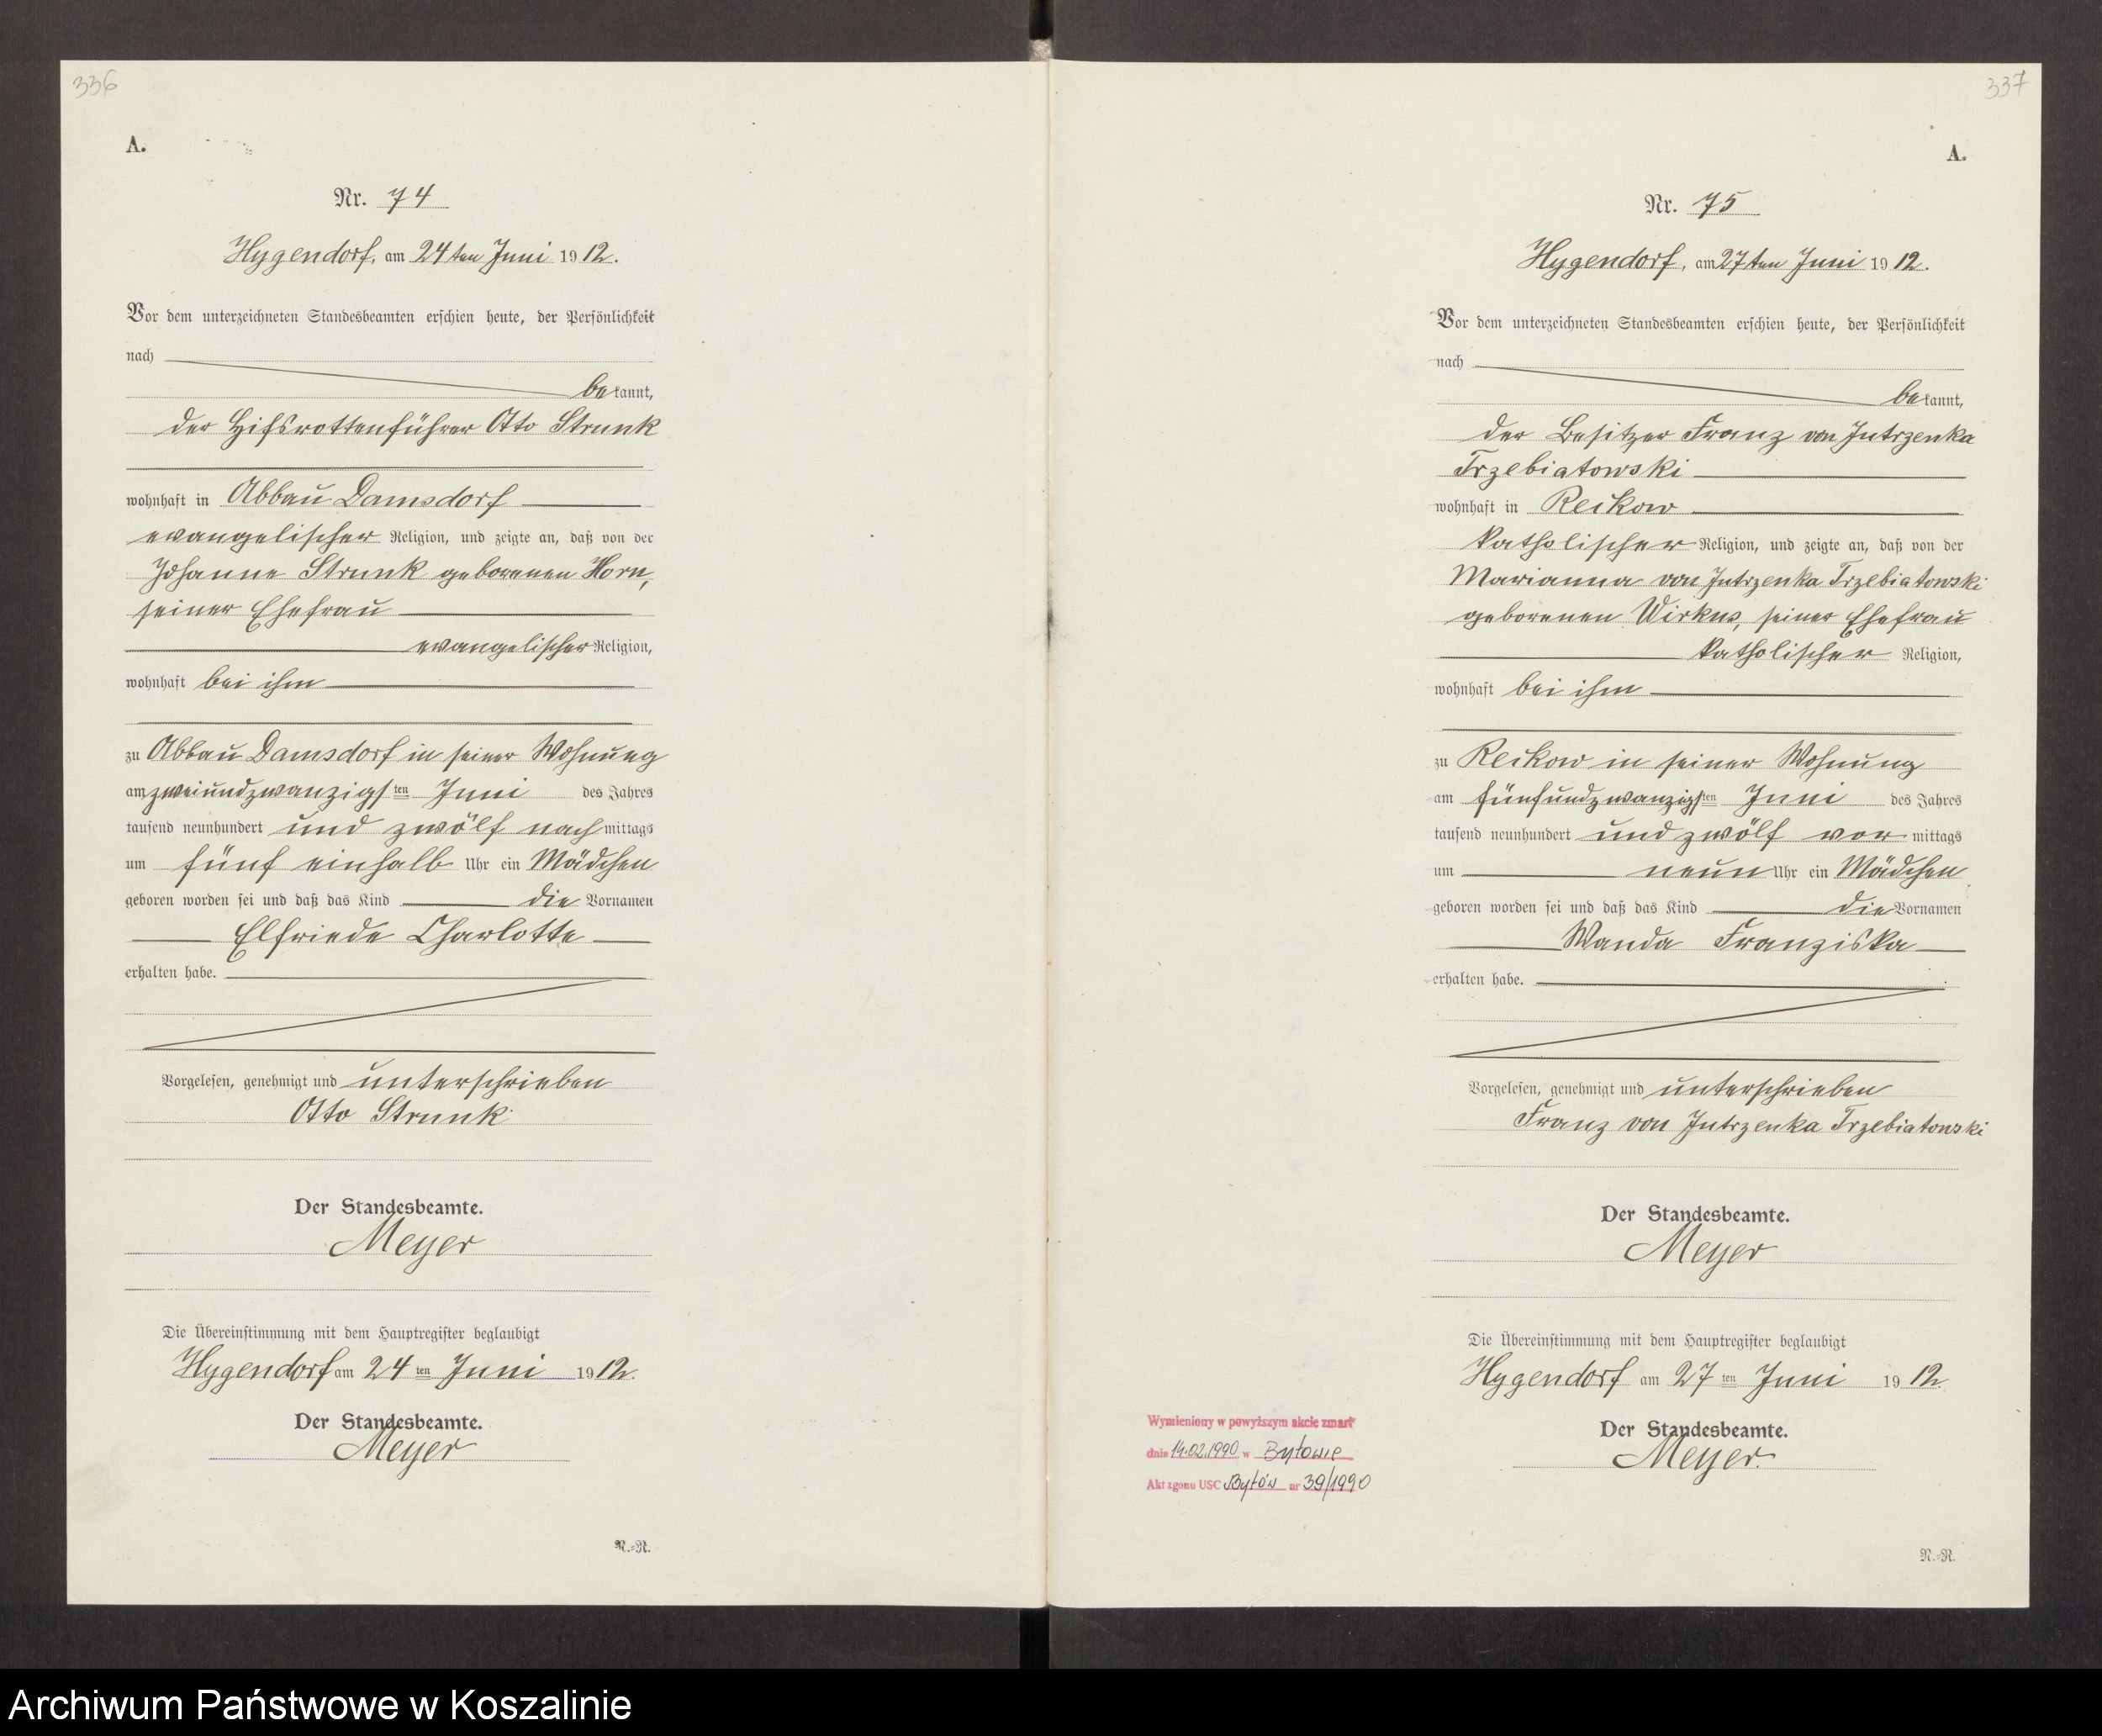 336
A.
Nr. 74
Hygendorf, am 24ten Juni 1912.
Vor dem unterzeichneten Standesbeamten erschien heute, der Persönlichkeit
nach
bekannt,
der Hifsrottenführer Otto Strunk
wohnhaft in Abbau Damsdorf
evangelischer Religion, und zeigte an, daß von der
Johanne Strunk geborenen Horn,
seiner Ehefrau
evangelischer Religion,
wohnhaft bei ihm
zu Abbau Damsdorf in seiner Wohnung
am zweiundzwanzigsten Juni des Jahres
tausend neunhundert und zwölf nachmittags
um fünf einhalb Uhr ein Mädchen
geboren worden sei und daß das Kind die Vornamen
Elfriede Charlotte
erhalten habe.
Vorgelesen, genehmigt und unterschrieben
Otto Strunk
Der Standesbeamte.
Meyer
Die Übereinstimmung mit dem Hauptregister beglaubigt
Hygendorf am 24ten Juni 1912.
Der Standesbeamte.
Meyer
N.-R.
337
A.
Nr. 75
Hygendorf, am 27ten Juni 1912.
Vor dem unterzeichneten Standesbeamten erschien heute, der Persönlichkeit
nach
bekannt,
der Besitzer Franz von Jutrzenka
Trzebiatowski
wohnhaft in Reckow
katholischer Religion, und zeigte an, daß von der
Marianna von Jutrzenka Trzebiatowski
geborenen Wirkus, seiner Ehefrau
katholischer Religion,
wohnhaft bei ihm
zu Reckow in seiner Wohnung
am fünfundzwanzigsten Juni des Jahres
tausend neunhundert und zwölf vormittags
um neun Uhr ein Mädchen
geboren worden sei und daß das Kind die Vornamen
Wanda Franziska
erhalten habe.
Vorgelesen, genehmigt und unterschrieben
Franz von Jutrzenka Trzebiatowski
Der Standesbeamte.
Meyer
Die Übereinstimmung mit dem Hauptregister beglaubigt
Hygendorf am 27ten Juni 1912.
Der Standesbeamte.
Meyer.
Wymieniony w powyższym akcie zmarł
dnia 14.02.1990 w Bytowie
Akt zgonu USC Bytów nr 39/1990
N.-R.
Archiwum Państwowe w Koszalinie